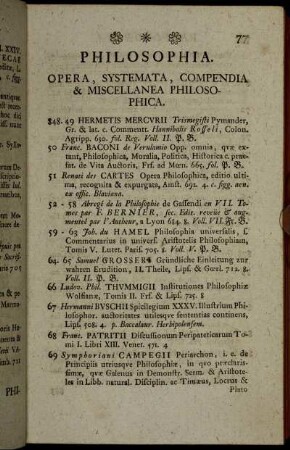 77
PHILOSOPHIA.
OPERA, SYSTEMATA, COMPENDIA
& MISCELLANEA PHILOSO-
PHICA.
848. 49 HERMETIS MERCVRII Trismegisti Pymander,
Gr. & lat. c. Commentt. Hannibalis Rosseli, Colon.
Agripp. 630. fol. Reg. Voll. II. P. B.
50 Franc. BACONI de Verulamio Opp. omnia, quæ ex-
stant, Philosophica, Moralia, Politica, Historica c. præm-
iss. de Vita Auctoris, Frf. ad Mœn. 665. fol. P. B.
51 Renati des CARTES Opera Philosophica, editio ul-
tima, recognita & expurgata, Amst. 692. 4. c. figg. aen.
ex offic. Blaviana.
52 - 58 Abregé de la Philosophie de Gassendi en VII To-
mes par F. BERNIER, sec. Edit. revüe & aug-
mentée par l'Autheur, a Lyon 684. 8. Voll. VII. Fr. B.
59 - 63 Joh. du HAMEL Philosophia universalis, s.
Commentarius in univers. Aristotelis Philosophiam,
Tomis V. Lutet. Paris. 705. 8. Voll. V. P. B.
64. 65 Samuel GROSSERS Gründliche Einleitung zur
wahren Erudition, II. Theile, Lips. & Gorl. 712. 8.
Voll. II. P. B.
66 Ludov. Phil. THVMMIGII Institutiones Philosophiæ
Wolfianæ, Tomis II. Frf. & Lips. 725. 8
67 Hermanni BVSCHII Spicilegium XXXV. Illustrium Phi-
losophor. auctoritates utilesqve sententias continens,
Lips. 508. 4. p. Baccalaur. Herbipolensem.
68 Franc. PATRITII Discussionum Peripateticarum To-
mi I. Libri XIII. Venet. 571. 4
69 Symphoriani CAMPEGII Periarchon, i. e. de
Principiis utriusqve Philosophiæ, in qvo præclaris-
simæ, qvæ Galenus in Demonstr. Serm. & Aristote-
les in Libb. natural. Disciplin. ac Timæus, Locrus &
Plato